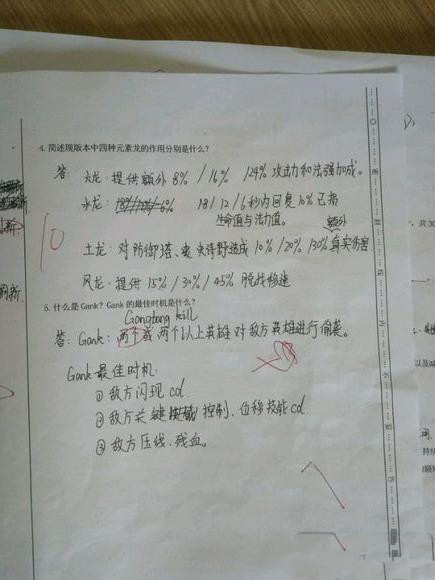 4. 简述现版本中四种元素龙的作用分别是什么?
答: 火龙: 提供额外 8% / 16% / 24% 攻击力和法强加成。
水龙: 18 / 12 / 6 秒内回复 10% 已损
生命值与法力值。
额外
土龙: 对防御塔、史诗野怪造成 10% / 20% / 30% 真实伤害
10
风龙: 提供 15% / 30% / 45% 脱战移速
5. 什么是 Gank? Gank 的最佳时机是什么?
Gangbang kill
答: Gank: 两个或两个以上英雄对敌方英雄进行偷袭。
Gank 最佳时机
① 敌方闪现 cd
② 敌方关键控制、位移技能 cd
③ 敌方压线、残血。